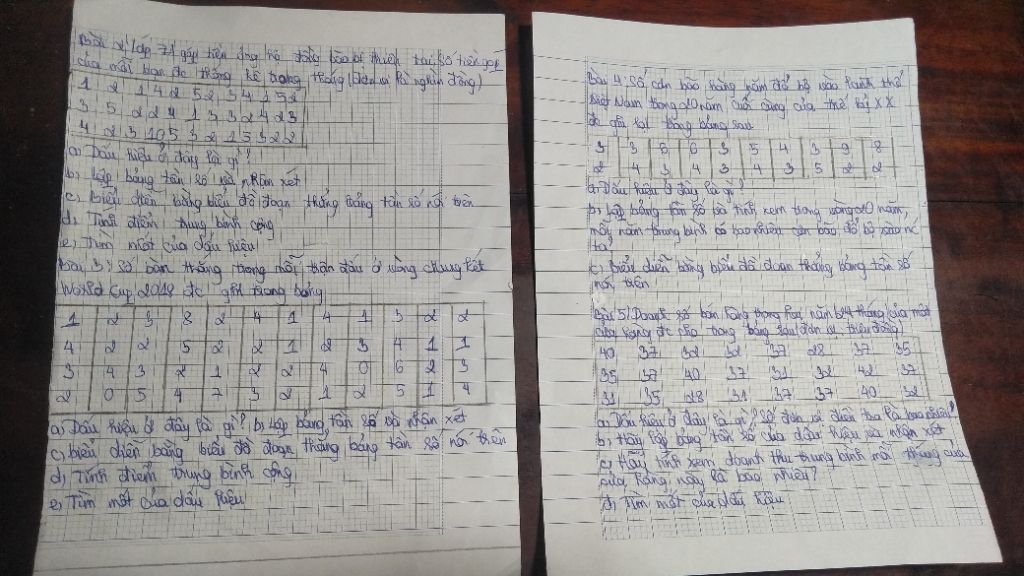 Bài 2: Lớp 7A góp tiền ủng hộ đồng bào bị thiên tai, số tiền góp
của mỗi bạn đc thống kê trong thống (đơn vị là nghìn đồng)
1 2 1 4 2 5 2 3 4 1 5 2
3 5 2 2 4 1 3 3 2 4 2 3
4 2 3 10 5 3 2 1 5 3 2 2
a) Dấu hiệu ở đây là gì?
b) Lập bảng tần số và nhận xét
c) Biểu diễn bằng biểu đồ đoạn thẳng bảng tần số nói trên
d) Tính điểm trung bình cộng
e) Tìm mốt của dấu hiệu
Bài 3: Số bàn thắng trong mỗi trận đấu ở vòng chung kết
World Cup 2018 đc ghi trong bảng
1 2 3 8 2 4 1 4 1 3 2 2
4 2 2 5 2 2 1 2 3 4 1 1
3 4 3 2 1 2 2 4 0 6 2 3
2 0 5 4 7 3 2 1 2 5 1 4
a) Dấu hiệu ở đây là gì? b) Lập bảng tần số và nhận xét
c) biểu diễn bằng biểu đồ đoạn thẳng bảng tần số nói trên
d) Tính điểm trung bình cộng
e) Tìm mốt của dấu hiệu
Bài 4: Số cơn bão hằng năm đổ bộ vào lãnh thổ
Việt Nam trong 20 năm cuối cùng của thế kỷ XX
đc ghi lại trong bảng sau
3 3 6 6 3 5 4 3 9 8
2 4 3 4 3 4 3 5 2 2
a) Dấu hiệu ở đây là gì?
b) Lập bảng tần số và tính xem trong vòng 20 năm,
mỗi năm trung bình có bao nhiêu cơn bão đổ bộ vào nc
ta?
c) Biểu diễn bằng biểu đồ đoạn thẳng bảng tần số
nói trên
Bài 5: Doanh số bán hàng trong hai năm 24 tháng của một
cửa hàng đc cho trong bảng sau (đơn vị triệu đồng)
40 37 32 32 37 28 37 35
35 37 40 37 31 32 42 37
31 35 28 31 37 37 40 32
a) Dấu hiệu ở đây là gì? Số đơn vị điều tra là bao nhiêu?
b) Hãy lập bảng tần số của dấu hiệu và nhận xét
c) Hãy tính xem doanh thu trung bình mỗi tháng của
cửa hàng này là bao nhiêu?
d) Tìm mốt của dấu hiệu